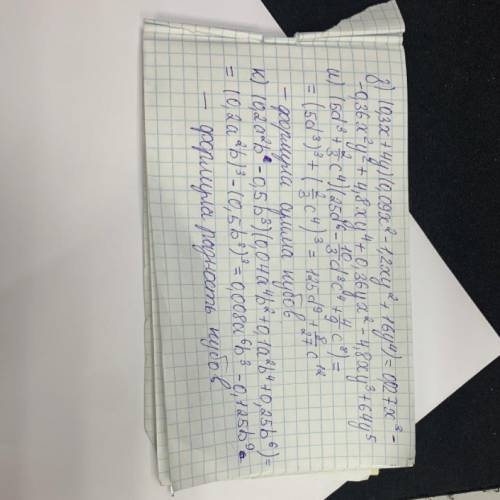 з) (0,3x + 4y)(0,09x² - 1,2xy² + 16y⁴) = 0,027x³ -
- 0,36x²y² + 4,8xy⁴ + 0,36yx² - 4,8xy³ + 64y⁵
и) (5d³ + 2/3 c⁴)(25d⁶ - 10/3 d³c⁴ + 4/9 c⁸) =
= (5d³)³ + (2/3 c⁴)³ = 125d⁹ + 8/27 c¹²
- формула сумма кубов
к) (0,2a²b - 0,5b³)(0,04a⁴b² + 0,1a²b⁴ + 0,25b⁶) =
= (0,2a²b)³ - (0,5b³)³ = 0,008a⁶b³ - 0,125b⁹
- формула разность кубов